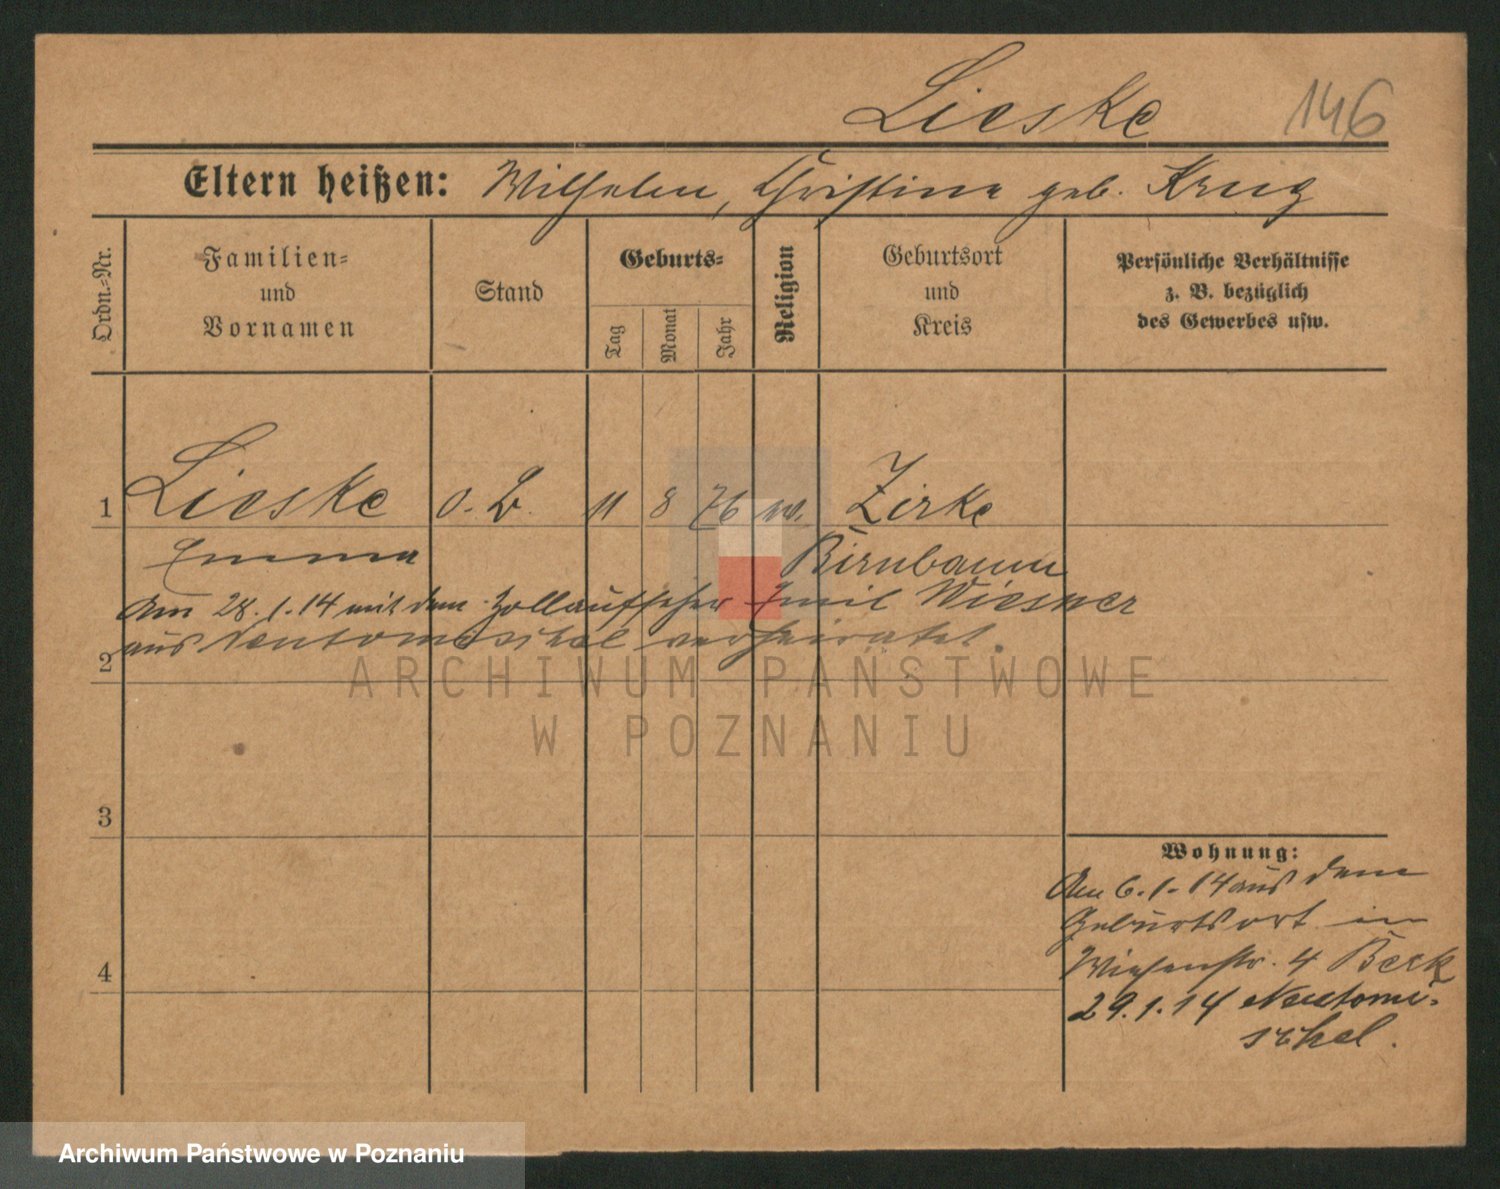 Lieske 146
Eltern heißen: Wilhelm, Christine geb. Krug
Ordn.=Nr.
Familien=
und
Vornamen
Stand
Geburts=
Tag
Monat
Jahr
Religion
Geburtsort
und
Kreis
Persönliche Verhältnisse
z. B. bezüglich
des Gewerbes usw.
1 Lieske o. B. 11 8 76 Zirke
Emma Birnbaum
Am 28.1.14 mit dem Zollaufseher Emil Wiesner
aus Neutomischel verheiratet.
2
3
4
Wohnung:
Am 6.1.14 aus dem
Geburtsort in
Wiesenstr. 4 Beck
29.1.14 Neutomi=
schel.
ARCHIWUM PAŃSTWOWE
W POZNANIU
Archiwum Państwowe w Poznaniu